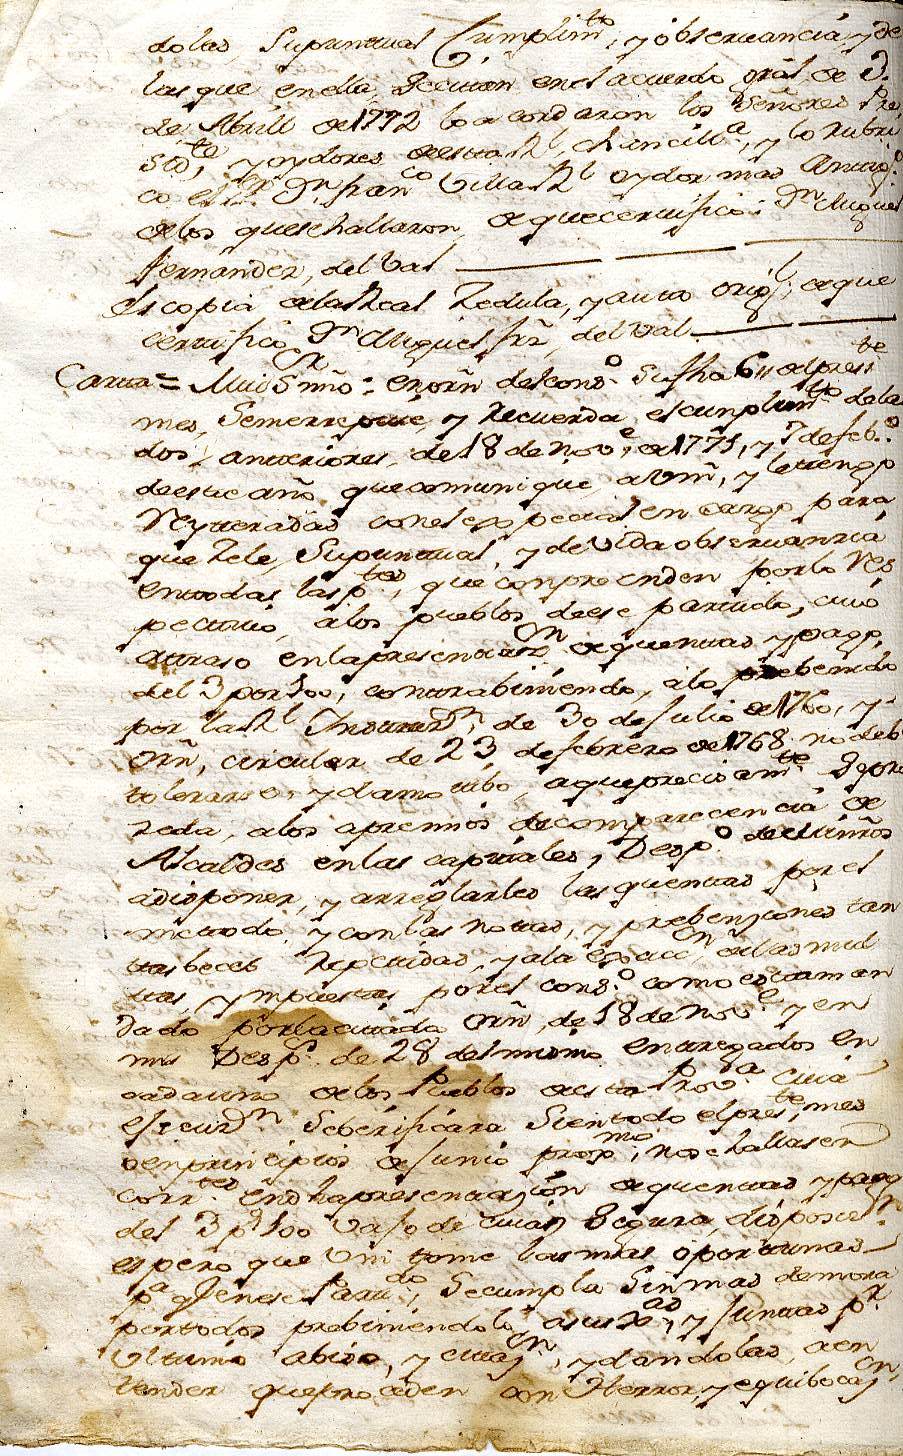 dolas, Supuntual Cumplim.to, y observancia, y de
las que en ella, Secitan en el acuerdo gral de 3.
de Abrill de 1772 lo acordaron los Señores Pre
Sid.te, y oydores de esta Rl. Chancill.a, y lo Rubri
co el S.r D.n fran.co Villa Rl. oydor mas Antig.o
de los que se hallaron, de que certifico: D.n Miguel
fernandez, del Val
Es copia de la Real Zedula, y auto orig.l; de que
certifico D.n Miguel frz, del Val.
Carta = Mui S.r mio = en orn del cons.o Su fha 6,, del pres.te
mes, Semerrepite, y Recuerda el cumplim.to de las
dos, anteriores, de 18 de nov.e de 1775, y 7 de feb.o
de este año que comunique a Vm, y le tengo
Reyteradas con el expecial encargo para
que Zele, Supuntual, y devida observancia
en todas las p.tes, que conpreenden por lo Res
pectivo, a los pueblos de ese partido, cuio
atraso en la presentaz.on de quentas, y pago
del 3 por 100, contrabiniendo, a lo prebenido
por la Rl Instruz.n, de 30 de Julio de 1760, y
Orn, circular de 23 de febrero de 1768. no deb
tolerarse, y da motibo, a que precisam.te Se pro
zeda, a los apremios de comparecencia de
Alcaldes en las capitales, Desp.o de
a disponer, y arreglarles las quentas por el
metodo, y con las notas, y prebenziones tan
tas beces Repetidas, y a la exacc.on de las mul
tas ympuestas por el cons.o como esta man
dado por la citada Orn, de 18 de Nov.e y en
mi Desp.o de 28 del mismo entregados en
cada uno de los Pueblos de esta Prov.a cuia
ejecuz.n Seberificara Si en todo el pres.te, mes
o en principios de Junio prox.mo, no se hallasen
corr.tes en dha presentazion de quentas y pago
del 3 p.r 100 bajo de cuia Segura, disposiz.n
espero que Vm tome las mas oportunas
p.a q.e en ese Partido, Se cumpla Sin mas demora
por todos prebiniendolo, a sus y Juntas p.r
Ultimo abiso, y y dandolas, a en
tender que proceden con Herror, y equibocaz.n